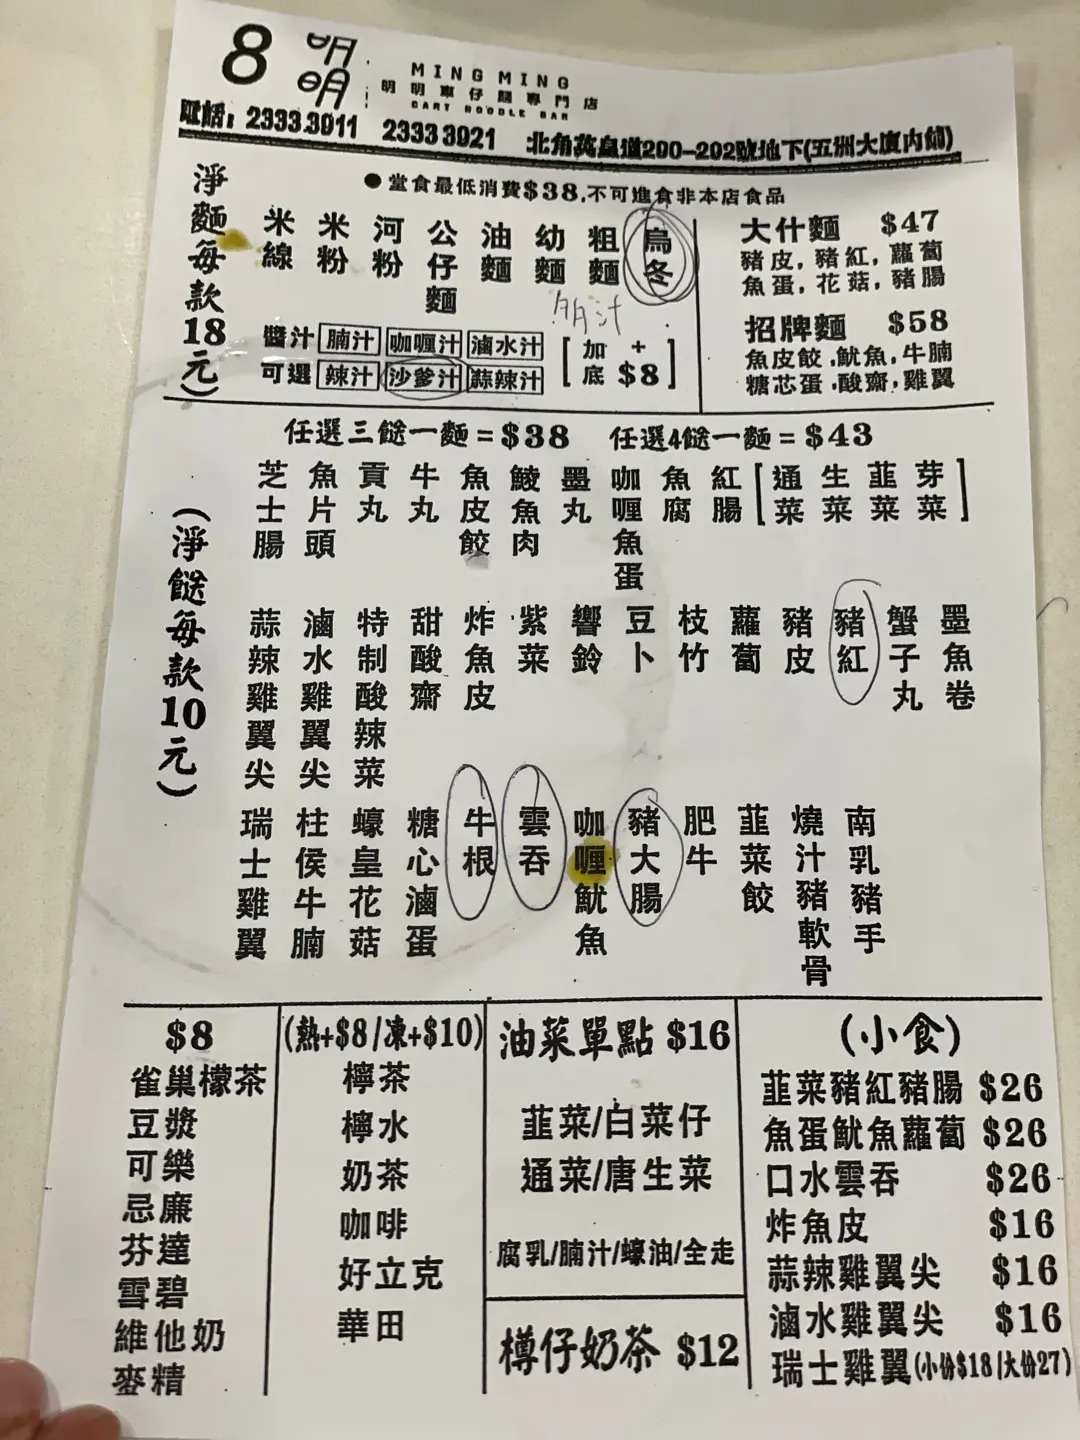 8 明明
MING MING
明明車仔麵專門店
CART NOODLE BAR
電話: 2333 3911 2333 3921 北角英皇道200-202號地下(五洲大廈內舖)
● 堂食最低消費$38,不可進食非本店食品
淨麵每款18元)
米線 米粉 河粉 公仔麵 油麵 幼麵 粗麵 烏冬
醬汁可選
腩汁 咖喱汁 滷水汁
辣汁 沙爹汁 蒜辣汁
[加底 +$8]
大什麵 $47
豬皮,豬紅,蘿蔔
魚蛋,花菇,豬腸
招牌麵 $58
魚皮餃,魷魚,牛腩
糖芯蛋,酸齋,雞翼
任選三餸一麵=$38 任選4餸一麵=$43
(淨餸每款10元)
芝士腸 魚片頭 貢丸 牛丸 魚皮餃 鯪魚肉 墨丸 咖喱魚蛋 魚腐 紅腸 [通菜 生菜 韮菜 芽菜]
蒜辣雞翼尖 滷水雞翼尖 特制酸辣菜 甜酸齋 炸魚皮 紫菜 響鈴 豆卜 枝竹 蘿蔔 豬皮 豬紅 蟹子丸 墨魚卷
瑞士雞翼 柱侯牛腩 蠔皇花菇 糖心滷蛋 牛根 雲吞 咖喱魷魚 豬大腸 肥牛 韮菜餃 燒汁豬軟骨 南乳豬手
$8
雀巢檬茶
豆漿
可樂
忌廉
芬達
雪碧
維他奶
麥精
(熱+$8/凍+$10)
檸茶
檸水
奶茶
咖啡
好立克
華田
油菜單點 $16
韮菜/白菜仔
通菜/唐生菜
腐乳/腩汁/蠔油/全走
樽仔奶茶 $12
(小食)
韮菜豬紅豬腸 $26
魚蛋魷魚蘿蔔 $26
口水雲吞 $26
炸魚皮 $16
蒜辣雞翼尖 $16
滷水雞翼尖 $16
瑞士雞翼(小份$18/大份27)